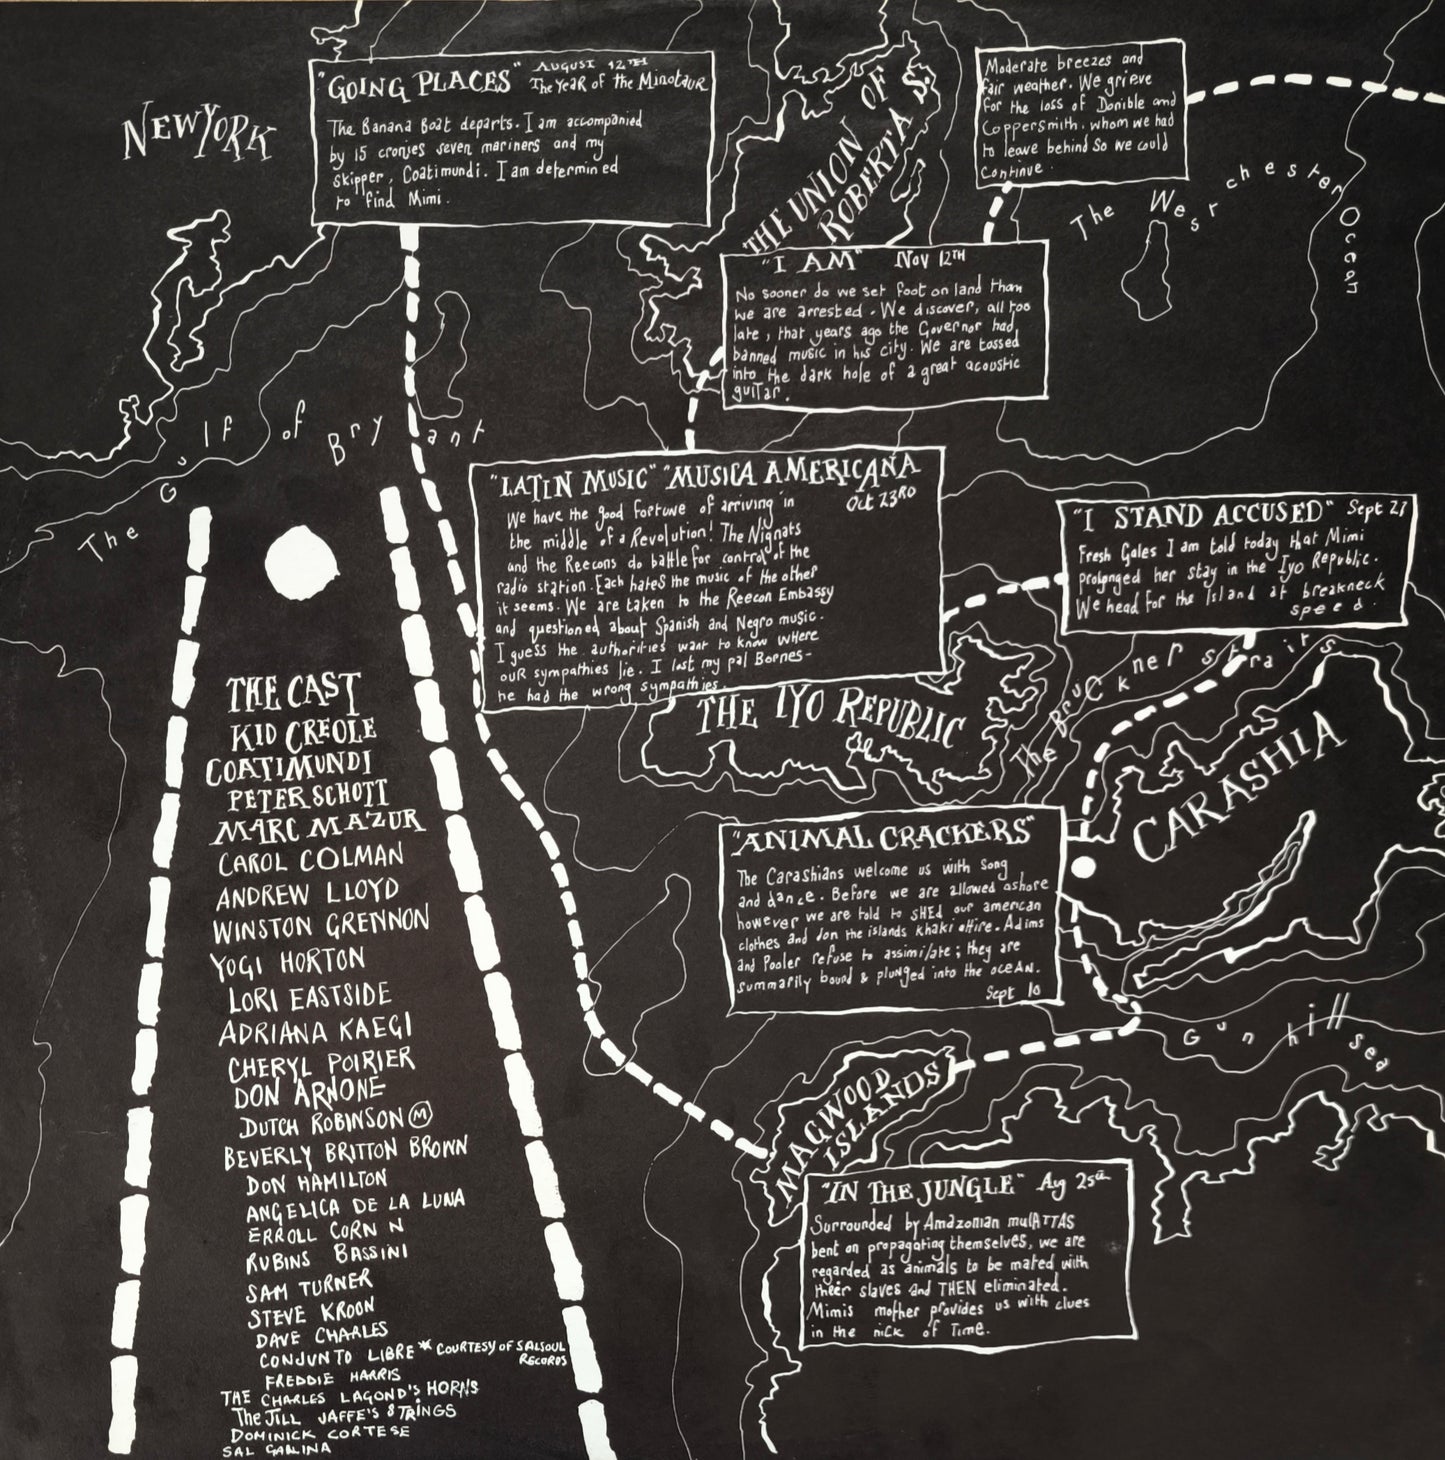 NEW YORK
"GOING PLACES" AUGUST 12TH
The Year of the Minotaur
The Banana Boat departs. I am accompanied
by 15 cronjes seven mariners and my
skipper, Coatimundi. I am determined
to find Mimi.
THE UNION OF
ROBERTA S.
Moderate breezes and
fair weather. We grieve
for the loss of Donible and
Coppersmith, whom we had
to leave behind so we could
continue.
The Westchester Ocean
"I AM" Nov 12TH
No sooner do we set foot on land than
we are arrested. We discover, all too
late, that years ago the Governor had
banned music in his city. We are tossed
into the dark hole of a great acoustic
guitar.
The Gulf of Bryant
"LATIN MUSIC" "MUSICA AMERICANA
Oct 23RD
We have the good fortune of arriving in
the middle of a Revolution! The Nignats
and the Reecons do battle for control of the
radio station. Each hates the music of the other
it seems. We are taken to the Reecon Embassy
and questioned about Spanish and Negro music.
I guess the authorities want to know where
our sympathies lie. I lost my pal Bornes-
he had the wrong sympathies.
"I STAND ACCUSED" Sept 27
Fresh Gales I am told today that Mimi
prolonged her stay in the Iyo Republic.
We head for the Island at breakneck
speed.
THE IYO REPUBLIC
The Bruckner Straits
CARASHIA
"ANIMAL CRACKERS"
The Carashians welcome us with song
and dance. Before we are allowed ashore
however we are told to SHED our american
clothes and don the islands khaki attire. Adims
and Pooler refuse to assimilate; they are
summarily bound & plunged into the ocean.
Sept 10
Gun hill sea
MAGWOOD
ISLANDS
"IN THE JUNGLE" Aug 25th
Surrounded by Amazonian mulATTAS
bent on propagating themselves, we are
regarded as animals to be mated with
their slaves and THEN eliminated.
Mimis mother provides us with clues
in the nick of Time.
THE CAST
KID CREOLE
COATIMUNDI
PETER SCHOTT
MARC MAZUR
CAROL COLMAN
ANDREW LLOYD
WINSTON GRENNON
YOGI HORTON
LORI EASTSIDE
ADRIANA KAEGI
CHERYL POIRIER
DON ARNONE
DUTCH ROBINSON (M)
BEVERLY BRITTON BROWN
DON HAMILTON
ANGELICA DE LA LUNA
ERROLL CORN N
RUBINS BASSINI
SAM TURNER
STEVE KROON
DAVE CHARLES
CONJUNTO LIBRE * COURTESY OF SALSOUL
RECORDS
FREDDIE HARRIS
THE CHARLES LAGOND'S HORNS
The JILL JAFFE'S STRINGS
DOMINICK CORTESE
SAL GALLINA